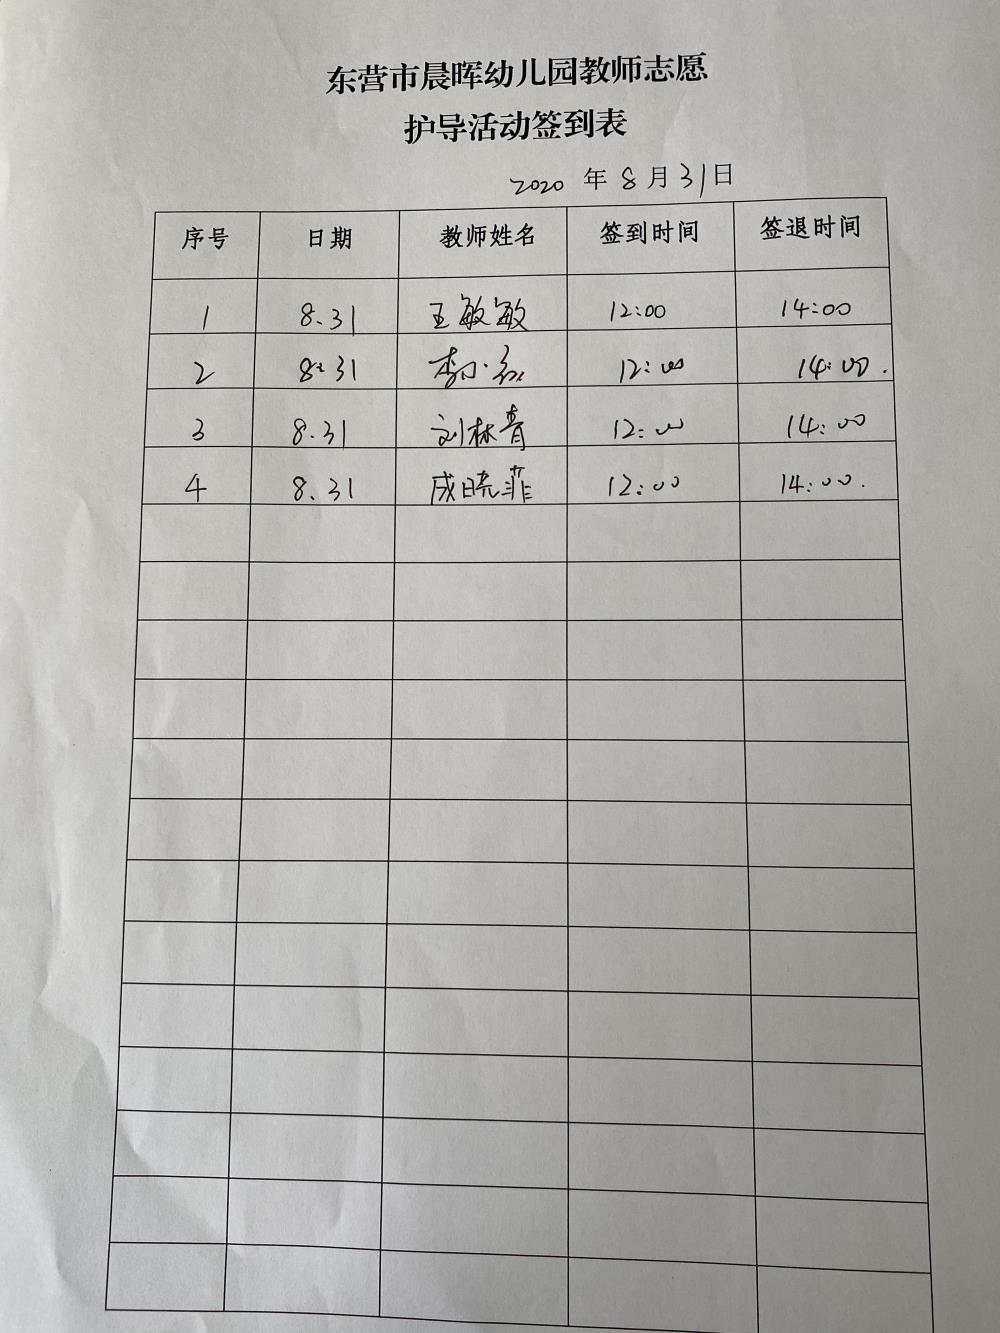 东营市晨晖幼儿园教师志愿
护导活动签到表
2020 年 8 月 31 日
序号 日期 教师姓名 签到时间 签退时间
1 8.31 王敏敏 12:00 14:00
2 8.31 李小 12:00 14:00.
3 8.31 刘林青 12:00 14:00
4 8.31 成晓菲 12:00 14:00.